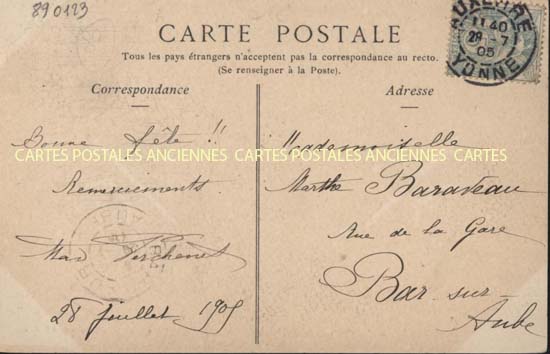 890123
CARTE POSTALE
Tous les pays étrangers n'acceptent pas la correspondance au recto.
(Se renseigner à la Poste).
Correspondance
Adresse
AUXERRE
11 40
28 -7
05
YONNE
Bonne fête !!
Remerciements
28 juillet 1905
Mademoiselle
Marthe Baraveau
Rue de la Gare
Bar sur
Aube
CARTES POSTALES ANCIENNES CARTES POSTALES ANCIENNES CARTES